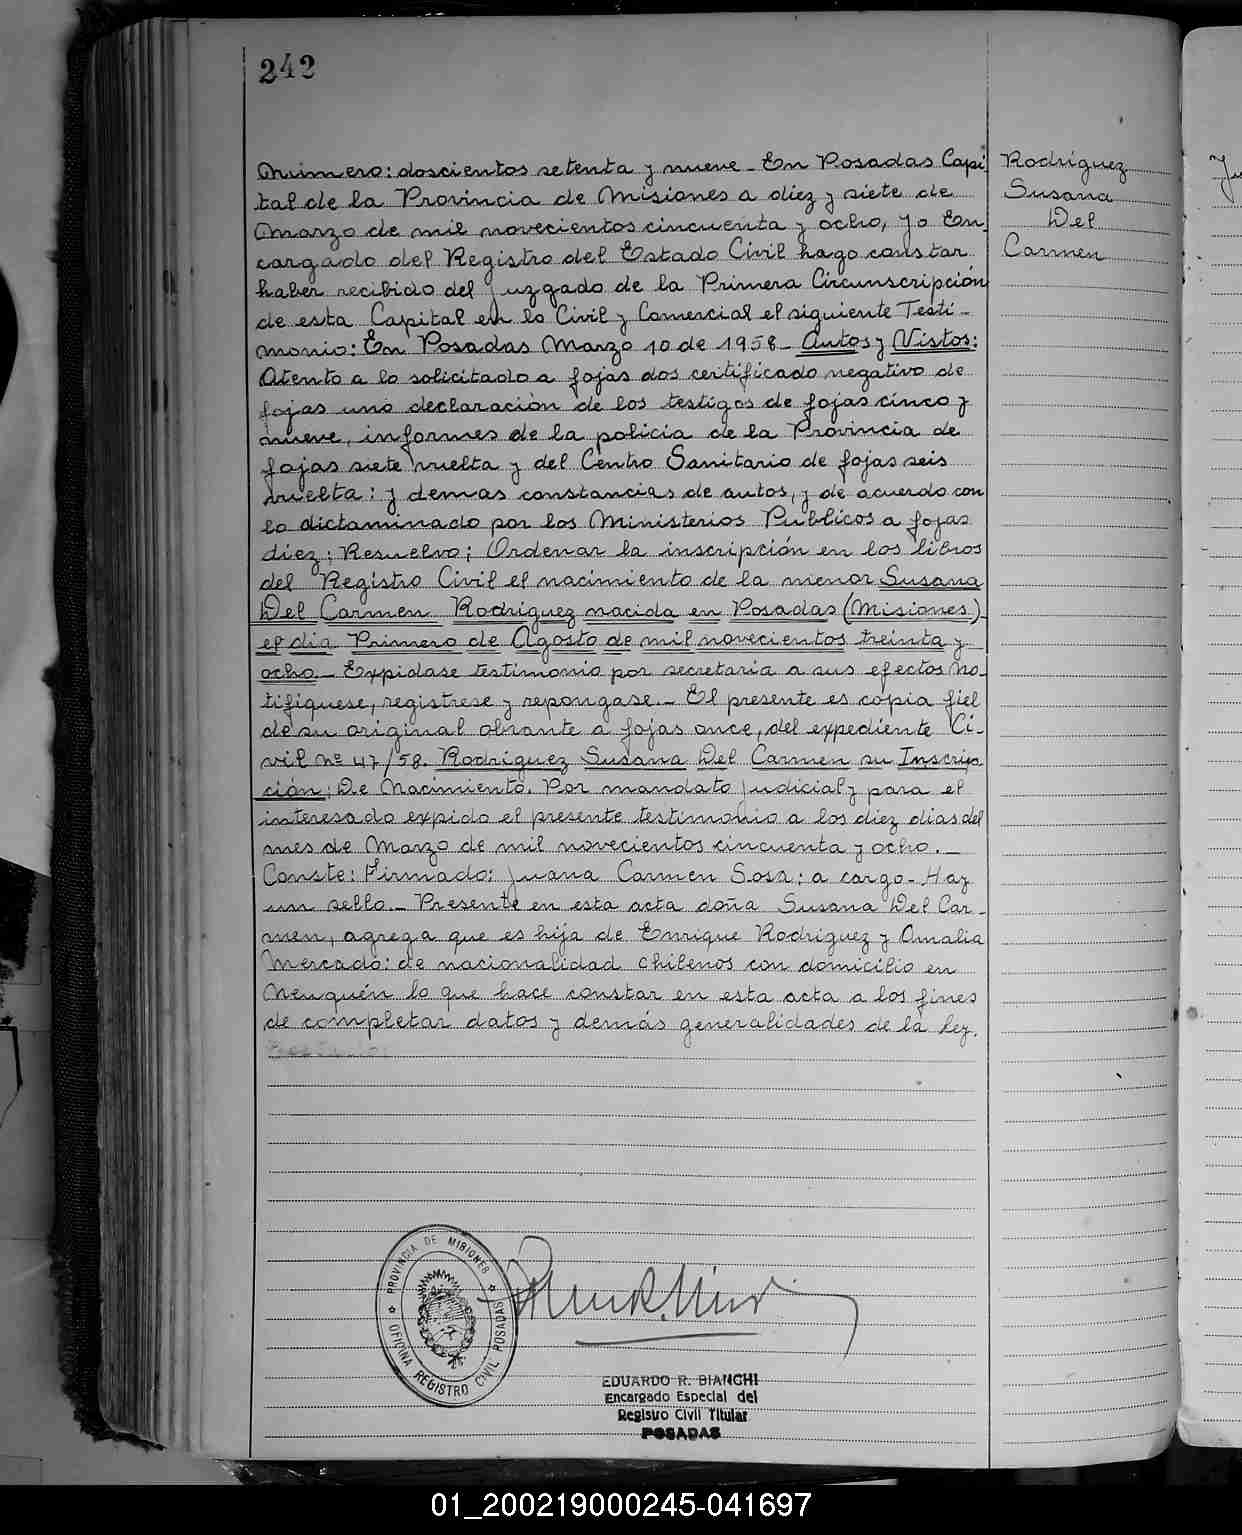 242
Número: doscientos setenta y nueve - En Posadas Capi
tal de la Provincia de Misiones a diez y siete de
Marzo de mil novecientos cincuenta y ocho, yo En-
cargado del Registro del Estado Civil hago constar
haber recibido del Juzgado de la Primera Circunscripción
de esta Capital en lo Civil y Comercial el siguiente Testi-
monio: En Posadas Marzo 10 de 1958 - Autos y Vistos:
Atento a lo solicitado a fojas dos certificado negativo de
fojas uno declaración de los testigos de fojas cinco y
nueve, informes de la policia de la Provincia de
fojas siete vuelta y del Centro Sanitario de fojas seis
vuelta: y demas constancias de autos, y de acuerdo con
lo dictaminado por los Ministerios Publicos a fojas
diez; Resuelvo; Ordenar la inscripción en los libros
del Registro Civil el nacimiento de la menor Susana
Del Carmen Rodriguez nacida en Posadas (Misiones)
el dia Primero de Agosto de mil novecientos treinta y
ocho. - Expidase testimonio por secretaria a sus efectos No-
tifiquese, registrese y repongase. - El presente es copia fiel
de su original obrante a fojas once, del expediente Ci-
vil Nº 47/58. Rodriguez Susana Del Carmen su Inscrip
ción; De Nacimiento. Por mandato judicial y para el
interesado expido el presente testimonio a los diez dias del
mes de Marzo de mil novecientos cincuenta y ocho. -
Conste: Firmado: Juana Carmen Sosa: a cargo - Hay
un sello. - Presente en esta acta doña Susana Del Car-
men, agrega que es hija de Enrique Rodriguez y Amalia
Mercado: de nacionalidad chilenos con domicilio en
Neuquén lo que hace constar en esta acta a los fines
de completar datos y demás generalidades de la ley.
Rodríguez
Susana
Del
Carmen
PROVINCIA DE MISIONES
OFICINA REGISTRO CIVIL POSADAS
EDUARDO R. BIANCHI
Encargado Especial del
Registro Civil Titular
POSADAS
01_200219000245-041697